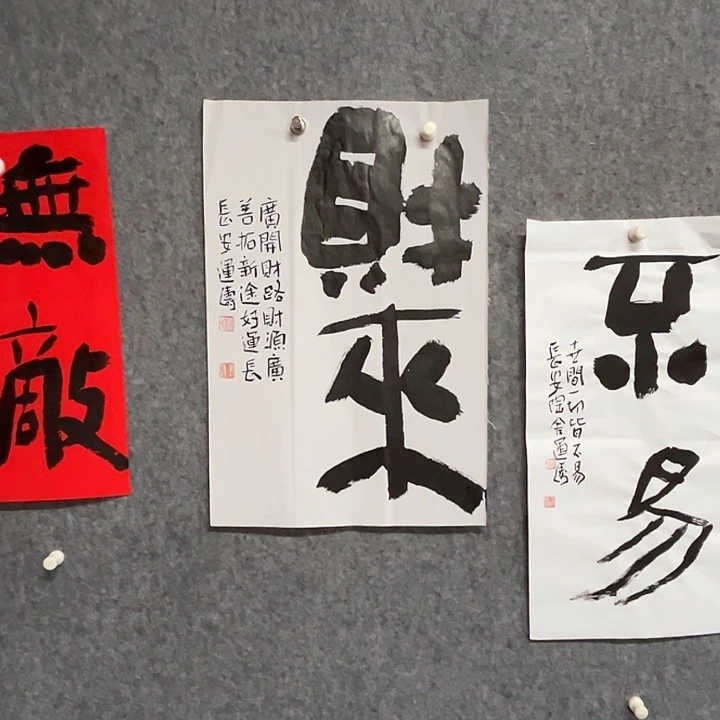 無敵
財來
廣開財路財源廣
善拓新途好運長
長安運
不易
世間一切皆不易
長安陶舍運